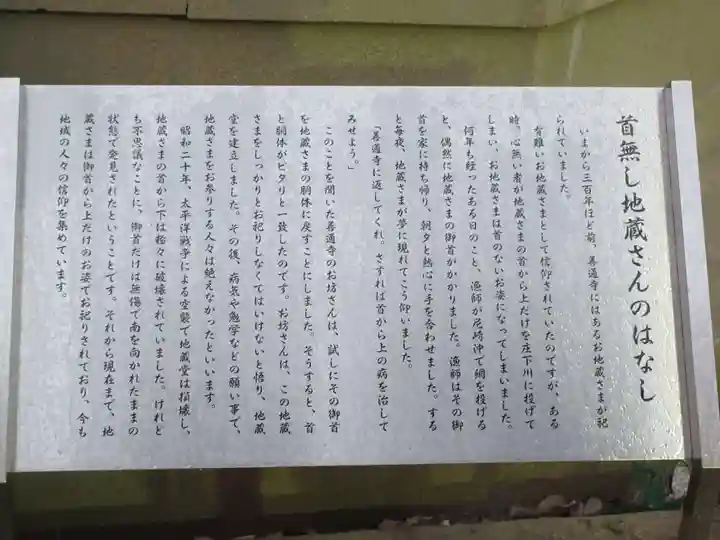 首無し地蔵さんのはなし
いまから三百年ほど前、善通寺にはあるお地蔵さまが祀
られていました。
有難いお地蔵さまとして信仰されていたのですが、ある
時、心無い者が地蔵さまの首から上だけを庄下川に投げて
しまい、お地蔵さまは首のないお姿になってしまいました。
何年も経ったある日のこと、漁師が尼崎沖で網を投げる
と、偶然にも地蔵さまの御首がかかりました。漁師はその御
首を家に持ち帰り、朝夕と熱心に手を合わせました。する
と毎夜、地蔵さまが夢に現れてこう仰いました。
「善通寺に返してくれ。さすれば首から上の病を治して
みせよう。」
このことを聞いた善通寺のお坊さんは、試しにその御首
を地蔵さまの胴体に戻すことにしました。そうすると、首
と胴体がピタリと一致したのです。お坊さんは、この地蔵
さまをしっかりとお祀りしなくてはいけないと悟り、地蔵
堂を建立しました。その後、病気や勉学などの願い事で、
地蔵さまをお参りする人々は絶えなかったといいます。
昭和二十年、太平洋戦争による空襲で地蔵堂は損壊し、
地蔵さまの首から下は粉々に破壊されていました。けれど
も不思議なことに、御首だけは無傷で南を向かれたままの
状態で発見されたということです。それから現在まで、地
蔵さまは御首から上だけのお姿でお祀りされており、今も
地域の人々の信仰を集めています。